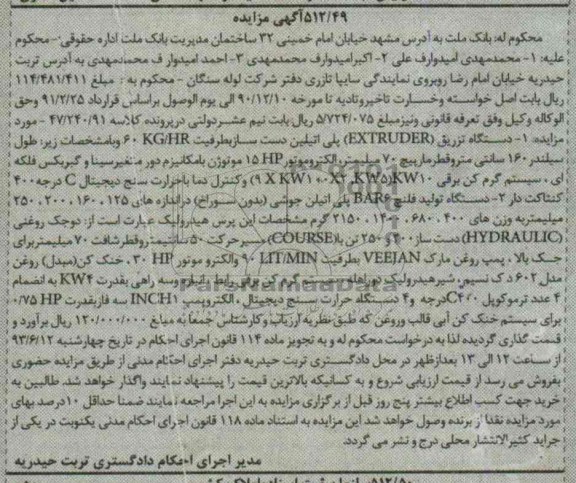 ۵۱۲/۴۹آگهی مزایده
محکوم له: بانک ملت به آدرس مشهد خیابان امام خمینی ۳۲ ساختمان مدیریت بانک ملت اداره حقوقی-محکوم
علیه: ۱- محمدمهدی امیدوارف علی ۲- اکبرامیدوارف محمدمهدی ۳- احمد امیدوار ف محمدمهدی به آدرس تربت
حیدریه خیابان امام رضا روبروی نمایندگی سایپا تازری دفتر شرکت لوله سنگان - محکوم به : مبلغ ۱۱۴/۴۸۱/۴۱۱
ریال بابت اصل خواسته وخسارت تاخیروتادیه تا مورخه ۹۰/۱۲/۱۰ الی یوم الوصول براساس قرارداد ۹۱/۲/۲۵ وحق
الوکاله وکیل وفق تعرفه قانونی ونیزمبلغ ۵/۷۲۴/۰۷۵ ریال بابت نیم عشردولتی درپرونده کلاسه ۴۷/۲۴۰/۹۱ - مورد
مزایده: ۱- دستگاه تزریق (EXTRUDER) پلی اتیلین دست سازبظرفیت ۶۰ KG/HR وبامشخصات زیر: طول
سیلندر۱۶۰ سانتی متروقطرمارپیچ ۷۰ میلیمتر، الکتروموتور ۱۵ HP موتوژن بامکانیزم دور متغیرسینا و گیربکس فلکه
ای ، سیستم گرم کن برقی KW۱۰ وکنترل دما باحرارت سنج دیجیتال C درجه۴۰۰
کنتاکت دار ۲- دستگاه تولید فلنچ BAR۶ پلی اتیلن جوشی (بدون سوراخ) دراندازه های ۱۲۵ ،۱۶۰ ، ۲۰۰ ، ۲۵۰
میلیمتربه وزن های ۴۰۰ ، ۶۸۰ ، ۱۴۰۰ ، ۲۱۵۰ گرم مشخصات این پرس هیدرولیک عبارت است از: دوجک روغنی
(HYDRAULIC) دست ساز و ۲۵۰ تن با(COURSE) مسیرحرکت ۵۰ سانتیمتروقطرشافت ۷۰ میلیمتربرای
جک بالا ، پمپ روغن مارک VEEJAN بظرفیت ۹۰ LIT/MIN والکترو موتور ۳۰ HP ، خنک کن(مبدل) روغن
مدل ۶۰۲ د ک نسیم ، شیرهیدرولیک گرم کن برقی وسه راهی بقدرت ۴KW به انضمام
۴ عدد ترموکوپل درجه و۴ دستگاه حرارت سنج دیجیتال ، الکتروپمپ INCH۱ سه فازبقدرت ۰/۷۵ HP
برای سیستم خنک کن آبی قالب وروغن که طبق نظریه ارزیاب وکارشناس جمعا به مبلغ ۱۲۰/۰۰۰/۰۰۰ ریال برآورد و
قیمت گذاری گردیده لذا به درخواست محکوم له و به تجویز ماده ۱۱۴ قانون اجرای احکام در تاریخ چهارشنبه ۹۳/۶/۱۲
از ساعت ۱۲ الی ۱۳ بعدازظهر در محل دادگستری تربت حیدریه دفتر اجرای احکام مدنی از طریق مزایده حضوری
بفروش می رسد از قیمت ارزیابی شروع و به کسانیکه بالاترین قیمت را پیشنهاد نمایند واگذار خواهد شد. طالبین به
خرید جهت کسب اطلاع بیشتر پنج روز قبل از برگزاری مزایده به این اجرا مراجعه نمایند ضمنا حداقل ۱۰درصد بهای
مورد مزایده نقدا از برنده وصول خواهد شد این مزایده به استناد ماده ۱۱۸ قانون اجرای احکام مدنی یکنوبت در یکی از
جراید کثیرالانتشار محلی درج و نشر می گردد.
مدیر اجرای احکام دادگستری تربت حیدریه